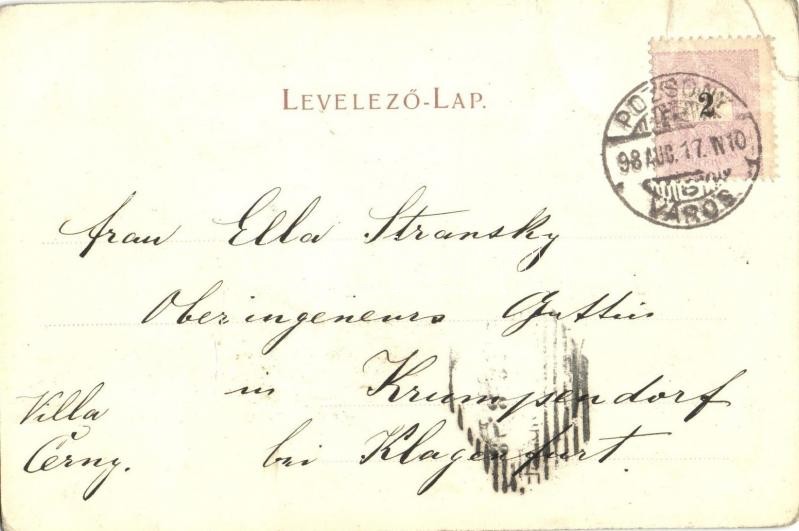 LEVELEZŐ-LAP.
2
POZSONY
98 AUG. 17. N10
VÁROS
Frau Ella Stransky
Oberingeneurs Gattin
in Krumpendorf
bei Klagenfurt.
Villa
Černy.